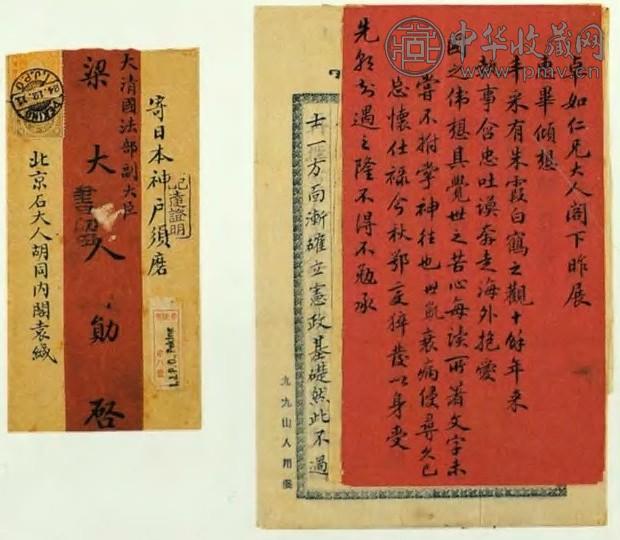 中华收藏网
www.pmv.cn
卓如仁兄大人閣下昨展
惠畢傾想
丰采有朱霞白鶴之觀十餘年來
執事含忠吐謨奔走海外抱愛
國之偉想具覺世之苦心每讀所著文字未
嘗不拊掌神往也世亂衰病侵尋久已
忘懷仕祿今秋鄂變猝發以身受
先朝知遇之隆不得不勉承
士一方面漸確立憲政基礎然此不過
九九山人用箋
寄日本神戸須磨
配達證明
大清國法部副大臣
梁大人勛啓
書留
北京石大人胡同內閣袁緘
PEKING
I.J.P.O.
I.J.P.O. Peking